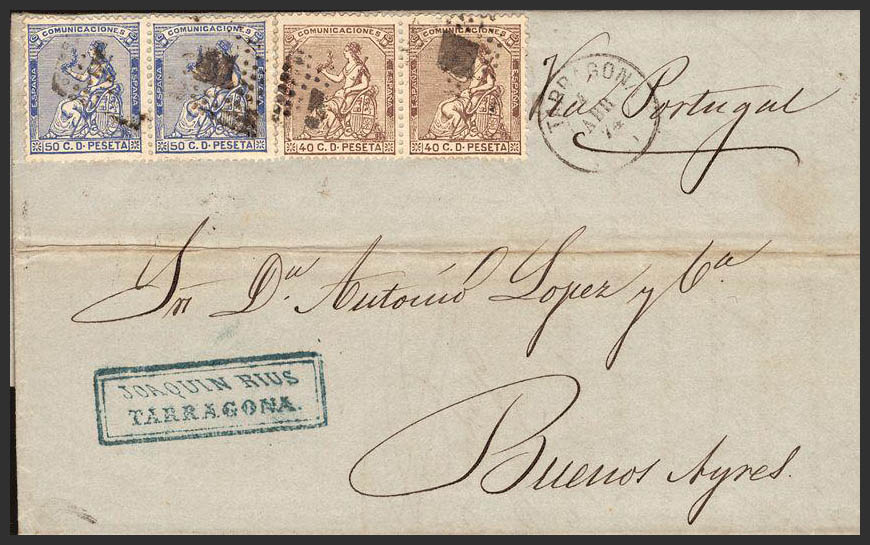 COMUNICACIONES
ESPAÑA
50 C. D. PESETA
COMUNICACIONES
ESPAÑA
50 C. D. PESETA
COMUNICACIONES
ESPAÑA
40 C. D. PESETA
COMUNICACIONES
ESPAÑA
40 C. D. PESETA
TARRAGONA
ABR
74
Via Portugal
Sr Dn Antonio Lopez y Cª
JOAQUIN RIUS
TARRAGONA.
Buenos Ayres.